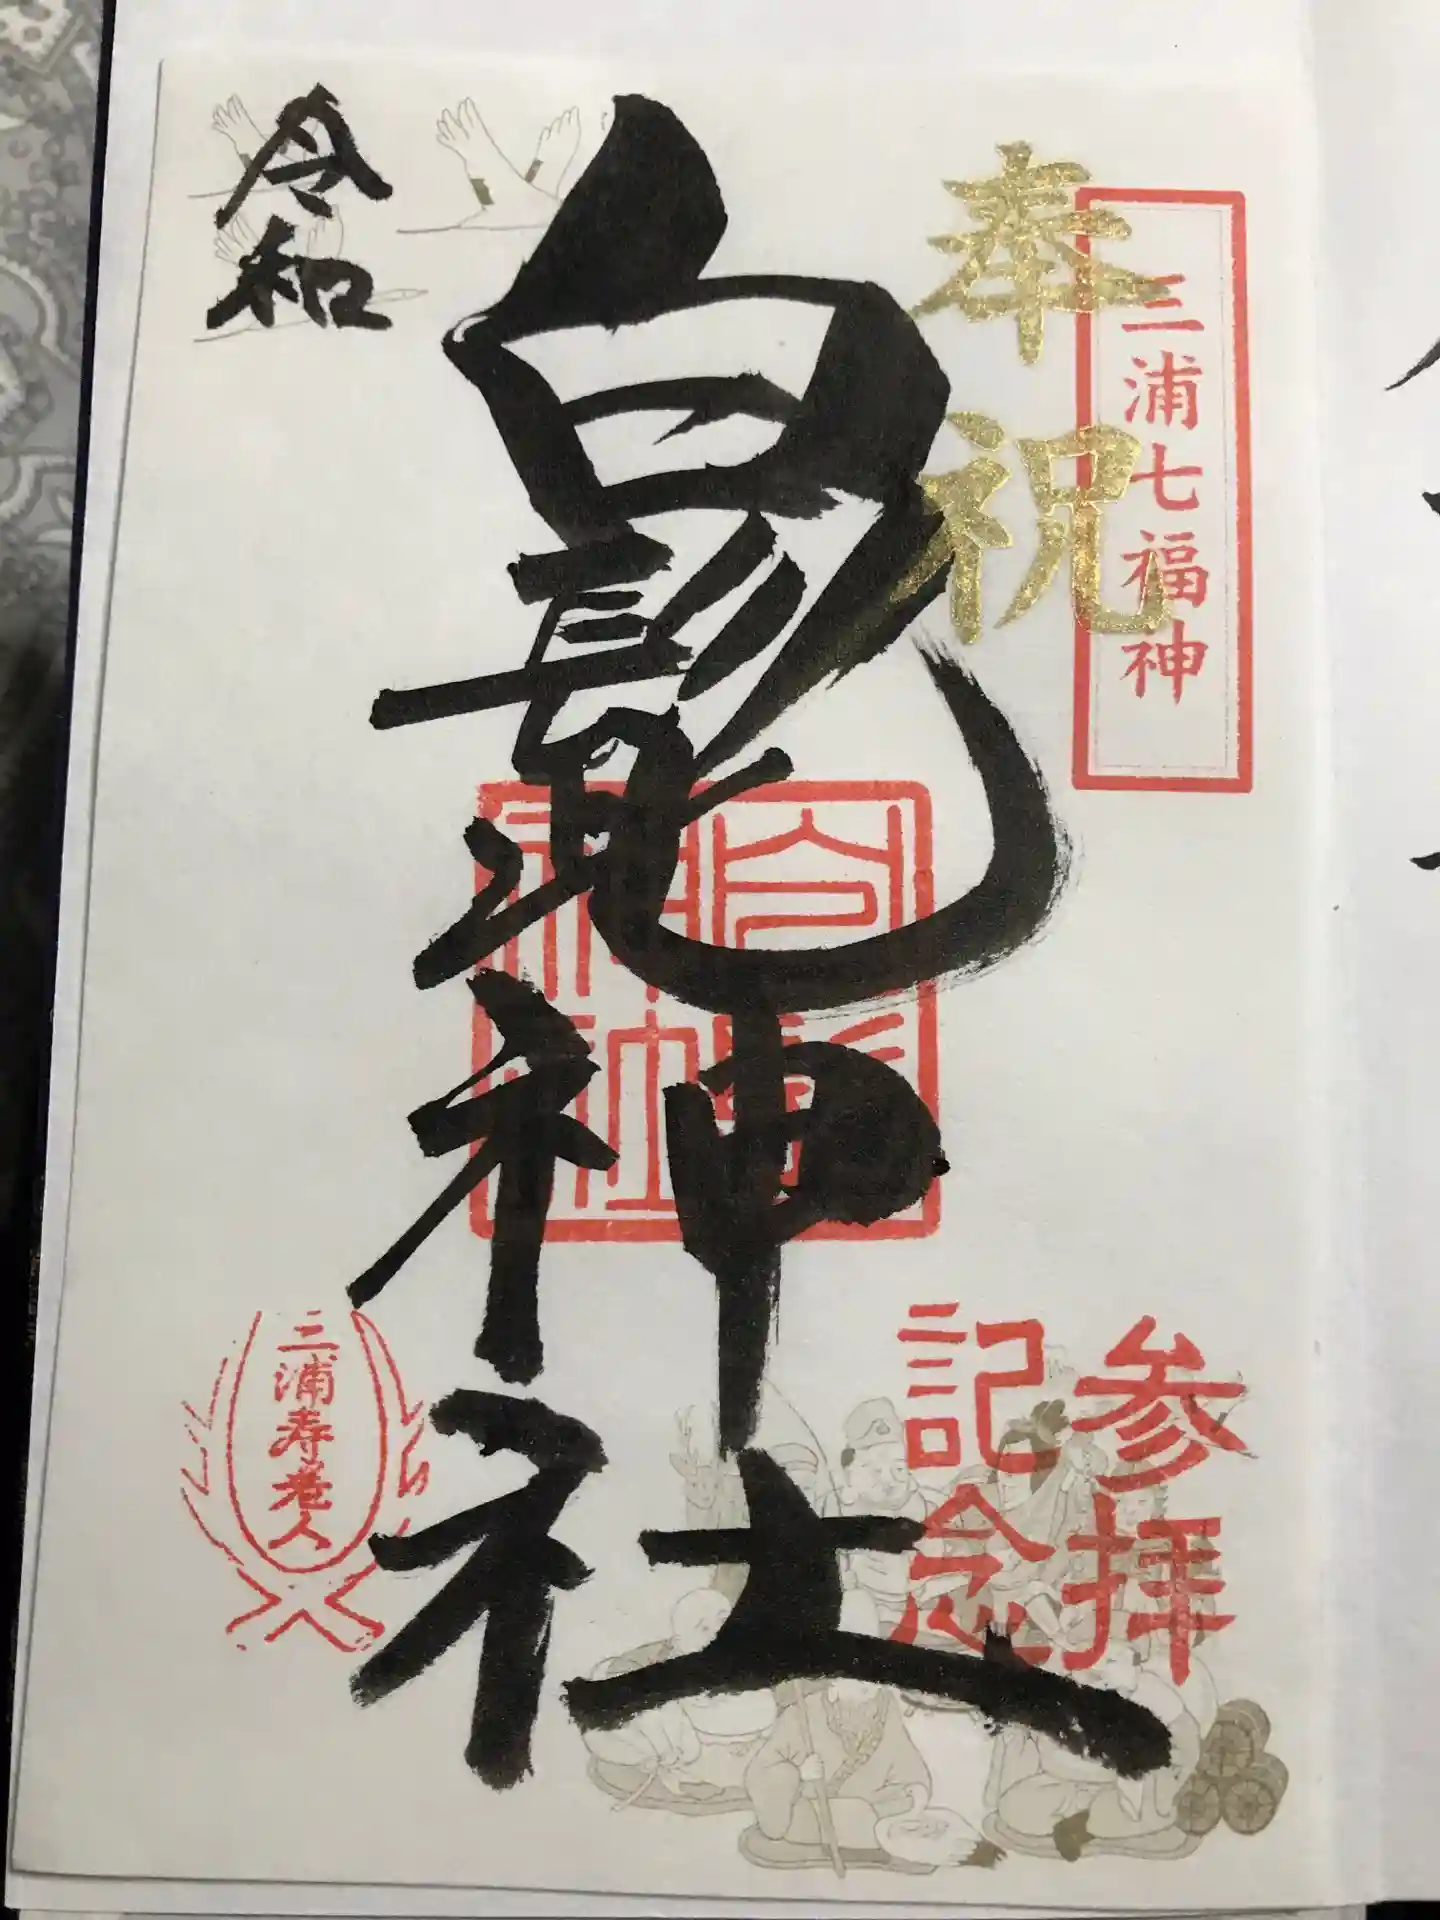 奉祝
三浦七福神
白髭神社
令和
参拝
記念
三浦寿老人
白髭
神社